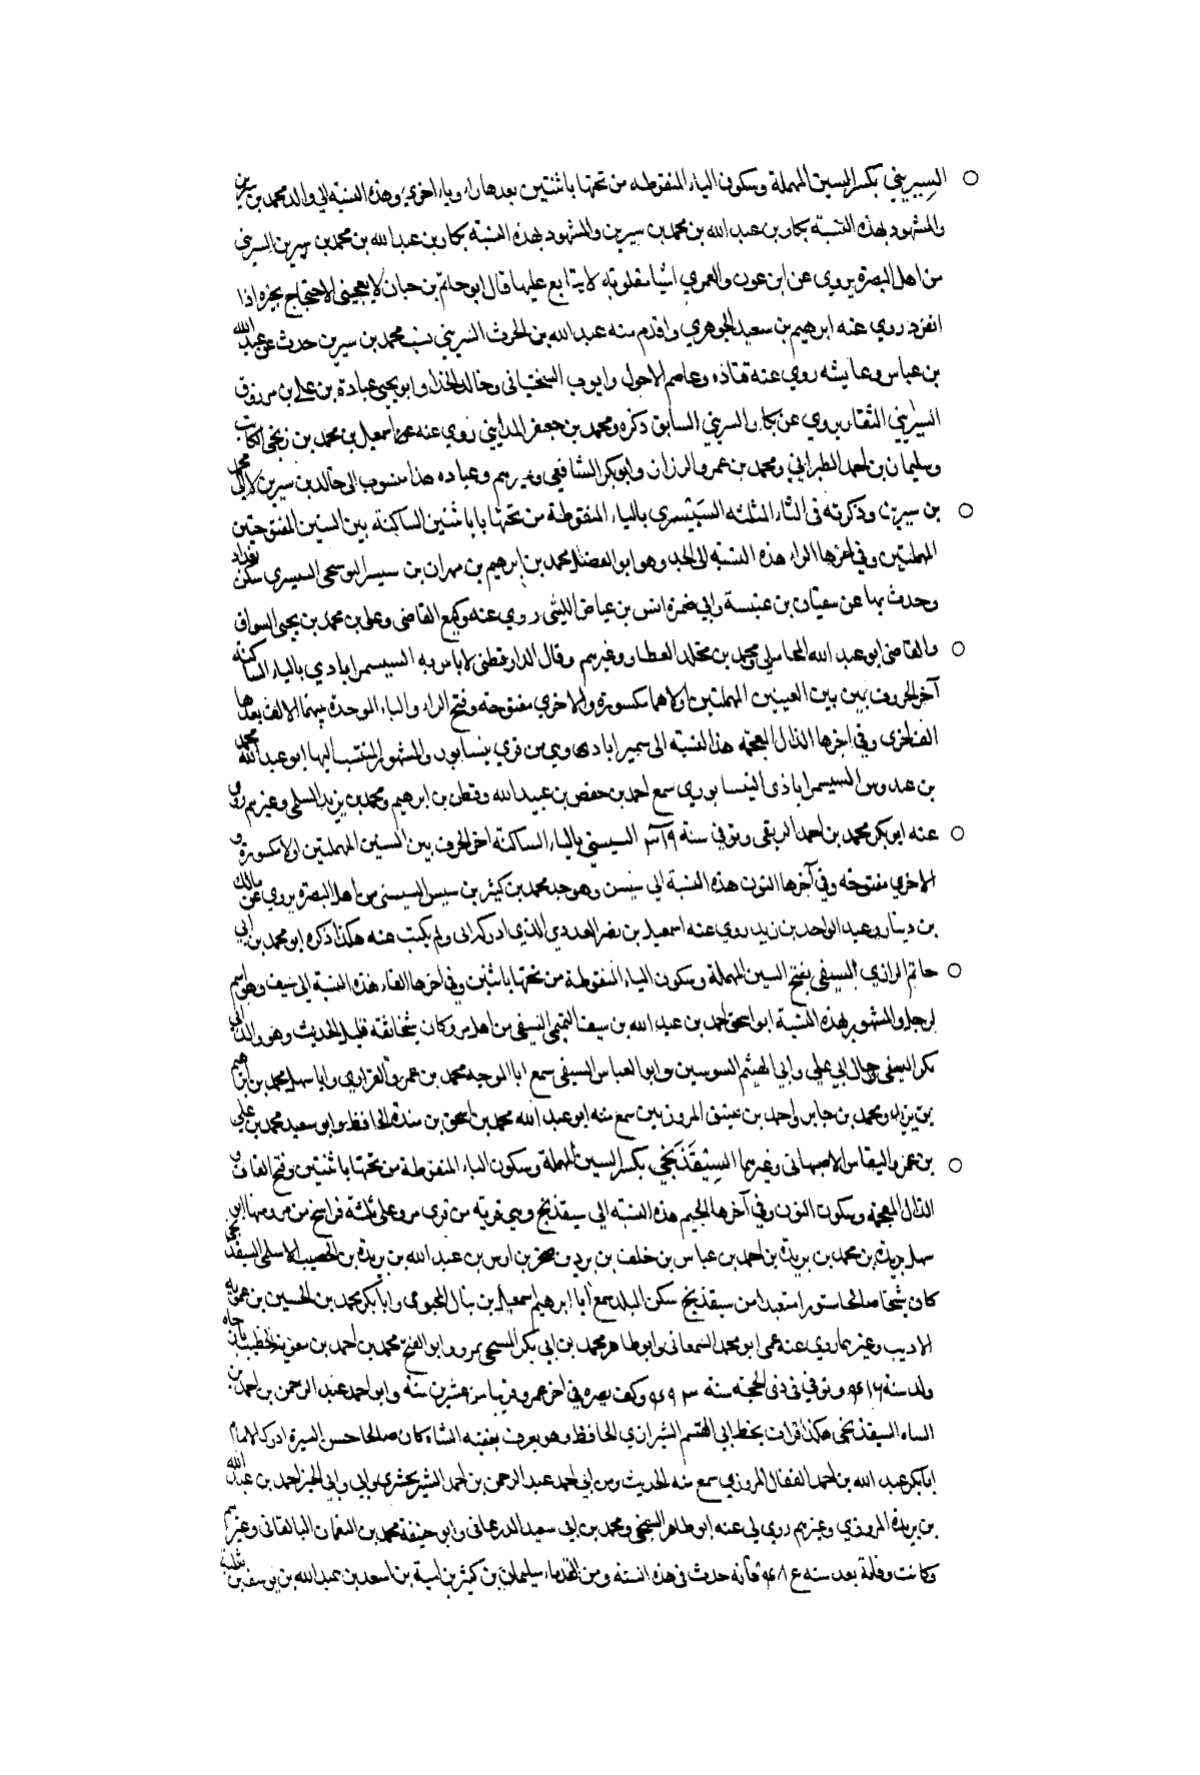 السِيريني بكسر السين المهملة وسكون الياء المنقوطه من تحتها باثنتين بعدها راء وياء اخرى وهذه النسبة الى والد محمد بن سيرين
والمشهور بهذه النسبة بكار بن عبد الله بن محمد بن سيرين والمشهور بهذه النسبة بكار بن عبد الله بن محمد بن سيرين السيريني
من اهل البصرة يروي عن ابن عون والعمري اشيا مقلوبه لا يتابع عليها قال ابو حاتم بن حبان لا يعجبني الاحتجاج بخبره اذا
انفرد روي عنه ابرهيم بن سعيد الجوهري واقدم منه عبد الله بن الحرث السريني نسيب محمد بن سيرين حدث عن عبد الله
بن عباس وعايشه روي عنه قتاده وعاصم الاحول وايوب السختياني وخالد الحذاء وابو يحيى عبادة بن علي بن مرزوق
السيريني النقار يروي عن بكار السريني السابق ذكره ومحمد بن جعفر المدايني روي عنه اسمعيل بن محمد بن زنجي الكاتب
وسليمان بن احمد الطبراني ومحمد بن عمرو الرزاز وابو بكر الشافعي وغيرهم وعباده هذا منسوب الى خالد بن سيرين لا الى محمد
بن سيرين وذكرته في التاء المثلثه السَيْسَري بالياء المنقوطة من تحتها باثنتين الساكنة بين السنين المفتوحتين
المهملتين وفي اخرها الراء هذه النسبه الى الجد وهو ابو الفضل محمد بن ابرهيم بن مهران بن سيسر البوسنجي السيسري سكن بغداد
وحدث بها عن سفيان بن عيينة وابي ضمرة انس بن عياض الليثي روي عنه وكيع القاضي وعلى بن محمد بن يحيى السواق
والقاضي ابو عبد الله المحاملي ومحمد بن مخلد العطار وغيرهم وقال الدارقطني لا باس به السيسمراباذي بالياء الساكنة
آخر الحروف بين السينين المهملتين اولاهما مكسورة والاخري مفتوحة وفتح الراء والباء الموحدة بينهما الالف بعدها
وفي اخرها الذال المعجمة هذه النسبة الى وهي من قري نيسابور والمشهور المنتسب اليها ابو عبد الله محمد
بن عدوس السيسمراباذي النيسابوري سمع احمد بن حفص بن عبد الله وقطن بن ابرهيم ومحمد بن يزيد السلمي وغيرهم روي
عنه ابو بكر محمد بن احمد وتوفي سنة السيسني بالياء الساكنة اخر الحروف بين السينين المهملتين اولا مكسورة و
الاخري مفتوحه وفي آخرها النون هذه النسبة الى سيسن وهو جد محمد بن كثير بن سيسن السيسني من اهل البصرة يروي عن مالك
بن دينار وعبد الواحد بن زيد روي عنه اسمعيل بن نصر العبدي الذي ادركه ابي ولم يكتب عنه هكذا ذكره ابو محمد بن ابي
حاتم الرازي السيفي بفتح السين المهملة وسكون الياء المنقوطة من تحتها باثنتين وفي اخرها الفاء هذه النسبة الى سيف وهو اسم
لرجل والمشهور بهذه النسبة ابو اسحق احمد بن عبد الله بن سيف التميمي السيفي من اهل مرو وكان شيخا ثقة قليل الحديث وهو والد ابي
بكر السيفي وخال ابي علي وابي الهيثم السوسيين وابو العباس السيفي سمع ابا الموجه محمد بن عمرو الفزاري وابا سهل محمد بن ابرهيم
بن يزيد ومحمد بن جابر واحمد بن عتيق المروزيين سمع منه ابو عبد الله محمد بن اسحق بن مندة الحافظ وابو سعيد محمد بن علي
بن عمرو النقاش الاصبهاني وغيرهما السِيْقَذَنجي بكسر السين المهملة وسكون الياء المنقوطة من تحتها باثنتين وفتح القاف و
الذال المعجمة وسكون النون وفي آخرها الجيم هذه النسبه الى سيقذنج وهي قرية من قرى مرو على ثلثة فراسخ من مرو منها ابو
سهل بريدة بن محمد بن بريدة بن احمد بن عباس بن خلف بن برد بن صخر بن اوس بن عبد الله بن بريدة بن الحصيب الاسلمي السيقذنجي
كان شيخا صالحا مستورا متعبدا من سيقذنج سكن البلد سمع ابا ابرهيم اسمعيل بن ينال المحبوبي وابا بكر محمد بن الحسين بن عمويه
الاديب وغيرهما روي عنه عمي ابو محمد السمعاني وابو طاهر محمد بن ابي بكر السنجي بمرو وابو الفتح محمد بن احمد بن الخطيب
ولد سنة ٤١٦ وتوفي في ذي الحجة سنة ٤٩٣ وكف بصره في اخر عمره قريبا من عشرين سنة وابو احمد عبد الرحمن بن احمد بن
الساه السيقذنجي هكذا قرات بخط ابي القسم الشيرازي الحافظ وهو يعرف بفقيه الشاه كان صالحا حسن السيرة ادرك الامام
ابا بكر عبد الله بن احمد القفال المروزي سمع منه الحديث ومن ابي احمد عبد الرحمن بن احمد الشيرنخشيري وابي الخير احمد بن عبد الله
بن بريدة المروزي وغيرهم روي لي عنه ابو طاهر السنجي ومحمد بن ابي سعيد الدرعاني وابو حنيفة محمد بن النعمان البالقاني وغيرهم
وكانت وفاته بعد سنه ٤٨٤ فانه حدث في هذه السنه ومن القدماء سليمان بن كثير بن امية بن اسعد بن عبد الله بن